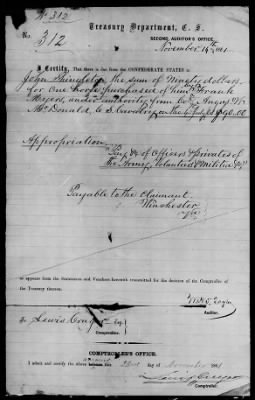 No 312
Treasury Department, C. S.
SECOND AUDITOR'S OFFICE,
No. 312
November 14th 1861
I Certify, That there is due from the CONFEDERATE STATES to
John Shingleton the sum of Ninety dollars
for One horse purchased of him by Frank
Myers, under authority from Col Angus W.
McDonald C S Cavalry, in the $90.00
Appropriation
Pay &c of Officers & privates of
the Army, Volunteers & Militia &c
Payable to the Claimant
Winchester
as appears from the Statements and Vouchers herewith transmitted for the decision of the Comptroller
of the Treasury thereon.
Auditor.
To Lewis Cruger Esq.
Comptroller.
COMPTROLLER'S OFFICE.
I admit and certify the above this 22nd day of November 1861
Lewis Cruger
Comptroller.